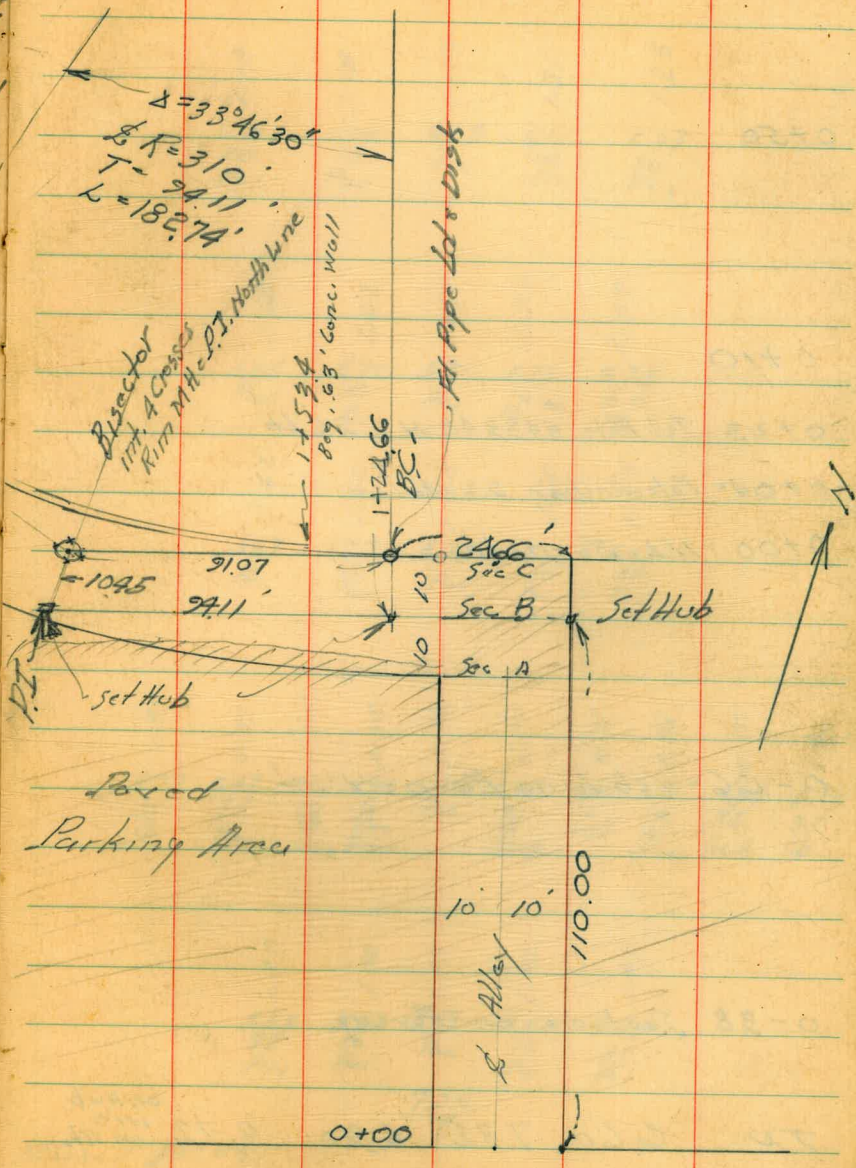 Δ = 33°46'30"
℄ R = 310'
T = 94.11'
L = 182.74'
Bisector
Int. 4 Crosses
Rim MH = P.I. North Line
1+53.4
Beg. .63' Conc. Wall
1+24.66
BC
Fd. Pipe Ld & Disk
N
91.07
24.66'
Sec C
10.45
10
94.11'
Sec B
Set Hub
10
Sec A
P.I.
Set Hub
Paved
Parking Area
10' 10'
110.00
℄ Alley
0+00